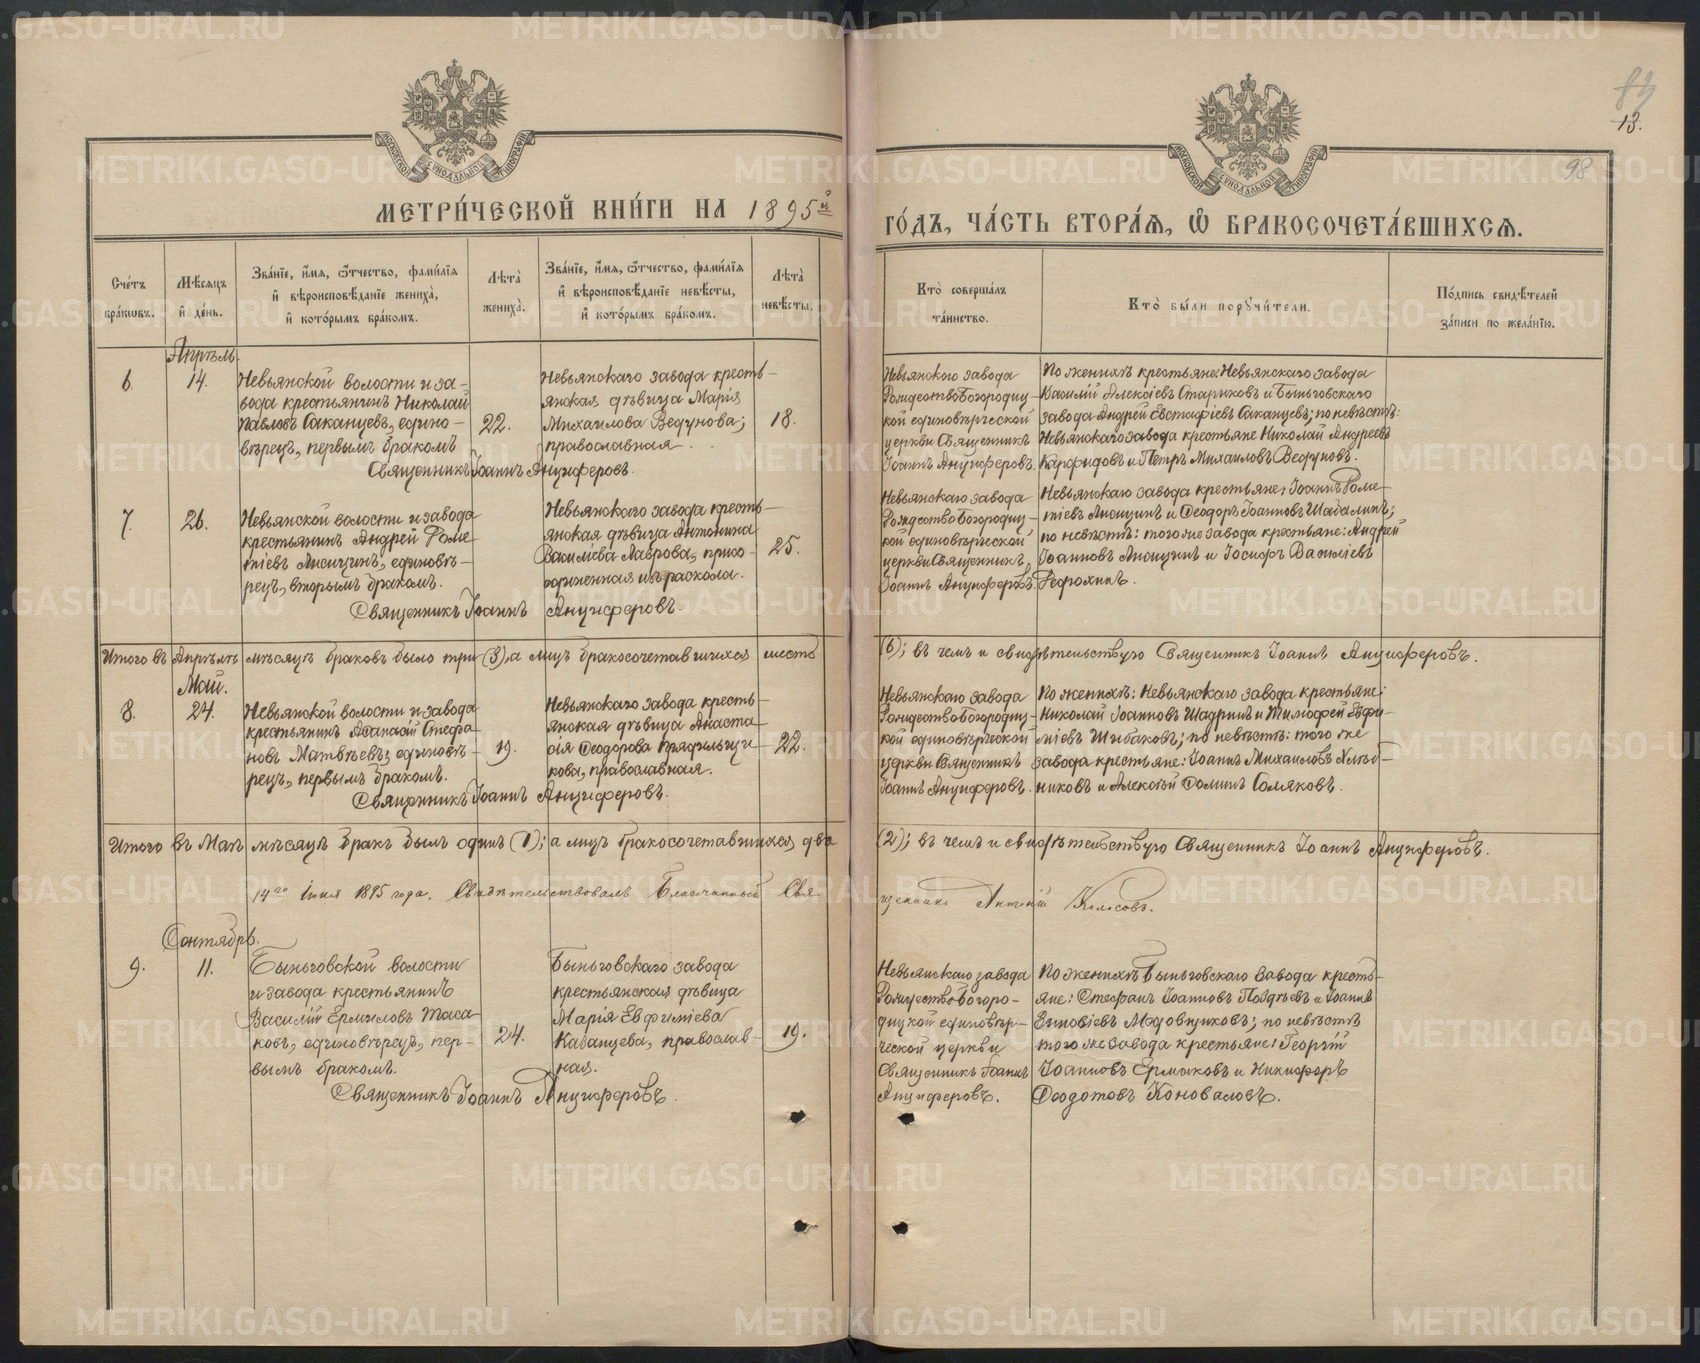 МЕТРИ́ЧЕСКОЙ КНИ́ГИ НА 1895й
ГО́ДЪ, ЧА́СТЬ ВТОРА́Я, Ѡ БРАКОСОЧЕТА́ВШИХСЯ.
13.
98
Сче́тъ бра́ковъ.
Мѣ́сяцъ и де́нь.
Зва́нїе, и́мя, ѻ́тчество, фами́лїя и вѣроисповѣ́данїе жениха̀, и кото́рымъ бра́комъ.
Лѣта̀ жениха̀.
Зва́нїе, и́мя, ѻ́тчество, фами́лїя и вѣроисповѣ́данїе невѣ́сты, и кото́рымъ бра́комъ.
Лѣта̀ невѣ́сты.
Кто̀ соверша́лъ та́инство.
Кто̀ бы́ли порꙋчи́тели.
По́дпись свидѣ́телей за́писи по жела́нїю.
Апрѣль.
6.
14.
Невьянской волости и за-
вода крестьянинъ Николай
Павловъ Саканцевъ, едино-
вѣрецъ, первымъ бракомъ
22.
Невьянскаго завода кресть-
янская дѣвица Марія
Михаилова Ведунова;
православная.
18.
Священникъ Іоаннъ Анциферовъ.
Невьянскаго завода
Рождество Богородиц-
кой единовѣрческой
церкви Священникъ
Іоаннъ Анциферовъ.
По женихѣ крестьяне: Невьянскаго завода
Василій Алексіевъ Стариковъ и Быньговскаго
завода Андрей Евстафіевъ Саканцевъ; по невѣстѣ:
Невьянскаго завода крестьяне Николай Андреевъ
Карфидовъ и Петръ Михаиловъ Ведуновъ.
7.
26.
Невьянской волости и завода
крестьянинъ Андрей Роме-
тіевъ Лисицинъ, единовѣ-
рецъ, вторымъ бракомъ.
Невьянскаго завода кресть-
янская дѣвица Антонина
Василіева Лаврова, присо-
единенная изъ раскола.
25.
Священникъ Іоаннъ Анциферовъ.
Невьянскаго завода
Рождество Богородиц-
кой единовѣрческой
церкви Священникъ
Іоаннъ Анциферовъ.
Невьянскаго завода крестьяне: Іоаннъ Роме-
тіевъ Лисицинъ и Ѳеодоръ Іоанновъ Шадринъ;
по невѣстѣ: того же завода крестьяне: Андрей
Іоанновъ Лисицинъ и Іосифъ Василіевъ
Итого въ Апрѣлѣ мѣсяцѣ браковъ было три (3), а лицъ бракосочетавшихся шесть
(6); въ чемъ и свидѣтельствую Священникъ Іоаннъ Анциферовъ.
Май.
8.
24.
Невьянской волости и завода
крестьянинъ Аѳанасій Стефа-
новъ Матвѣевъ; единовѣ-
рецъ, первымъ бракомъ.
19.
Невьянскаго завода кресть-
янская дѣвица Анаста-
сія Ѳеодорова Прядильщи-
кова, православная.
22.
Священникъ Іоаннъ Анциферовъ.
Невьянскаго завода
Рождество Богородиц-
кой единовѣрческой
церкви Священникъ
Іоаннъ Анциферовъ.
По женихѣ: Невьянскаго завода крестьяне:
Николай Іоанновъ Шадринъ и Тимофей Евфи-
міевъ Шибаковъ; по невѣстѣ: того же
завода крестьяне: Іоаннъ Михаиловъ Хлѣб-
никовъ и Алексѣй Ѳоминъ Соляковъ.
Итого въ Маѣ мѣсяцѣ бракъ былъ одинъ (1); а лицъ бракосочетавшихся два
(2); въ чемъ и свидѣтельствую Священникъ Іоаннъ Анциферовъ.
14го Іюня 1895 года. Свидѣтельствовалъ Благочинный Свя-
щенникъ Антоній Колосовъ.
Сентябрь.
9.
11.
Быньговской волости
и завода крестьянинъ
Василій Ермиловъ Таса-
ковъ, единовѣрецъ, пер-
вымъ бракомъ.
24.
Быньговскаго завода
крестьянская дѣвица
Марія Евфиміева
Казанцева, православ-
ная.
19.
Священникъ Іоаннъ Анциферовъ.
Невьянскаго завода
Рождество Богоро-
дицкой единовѣр-
ческой церкви
Священникъ Іоаннъ
Анциферовъ.
По женихѣ Быньговскаго завода кресть-
яне: Стефанъ Іоанновъ Поздѣевъ и Іоаннъ
Зиновіевъ Медовщиковъ; по невѣстѣ
того же завода крестьяне: Георгій
Іоанновъ Ермаковъ и Никифоръ
Ѳеодотовъ Коноваловъ.